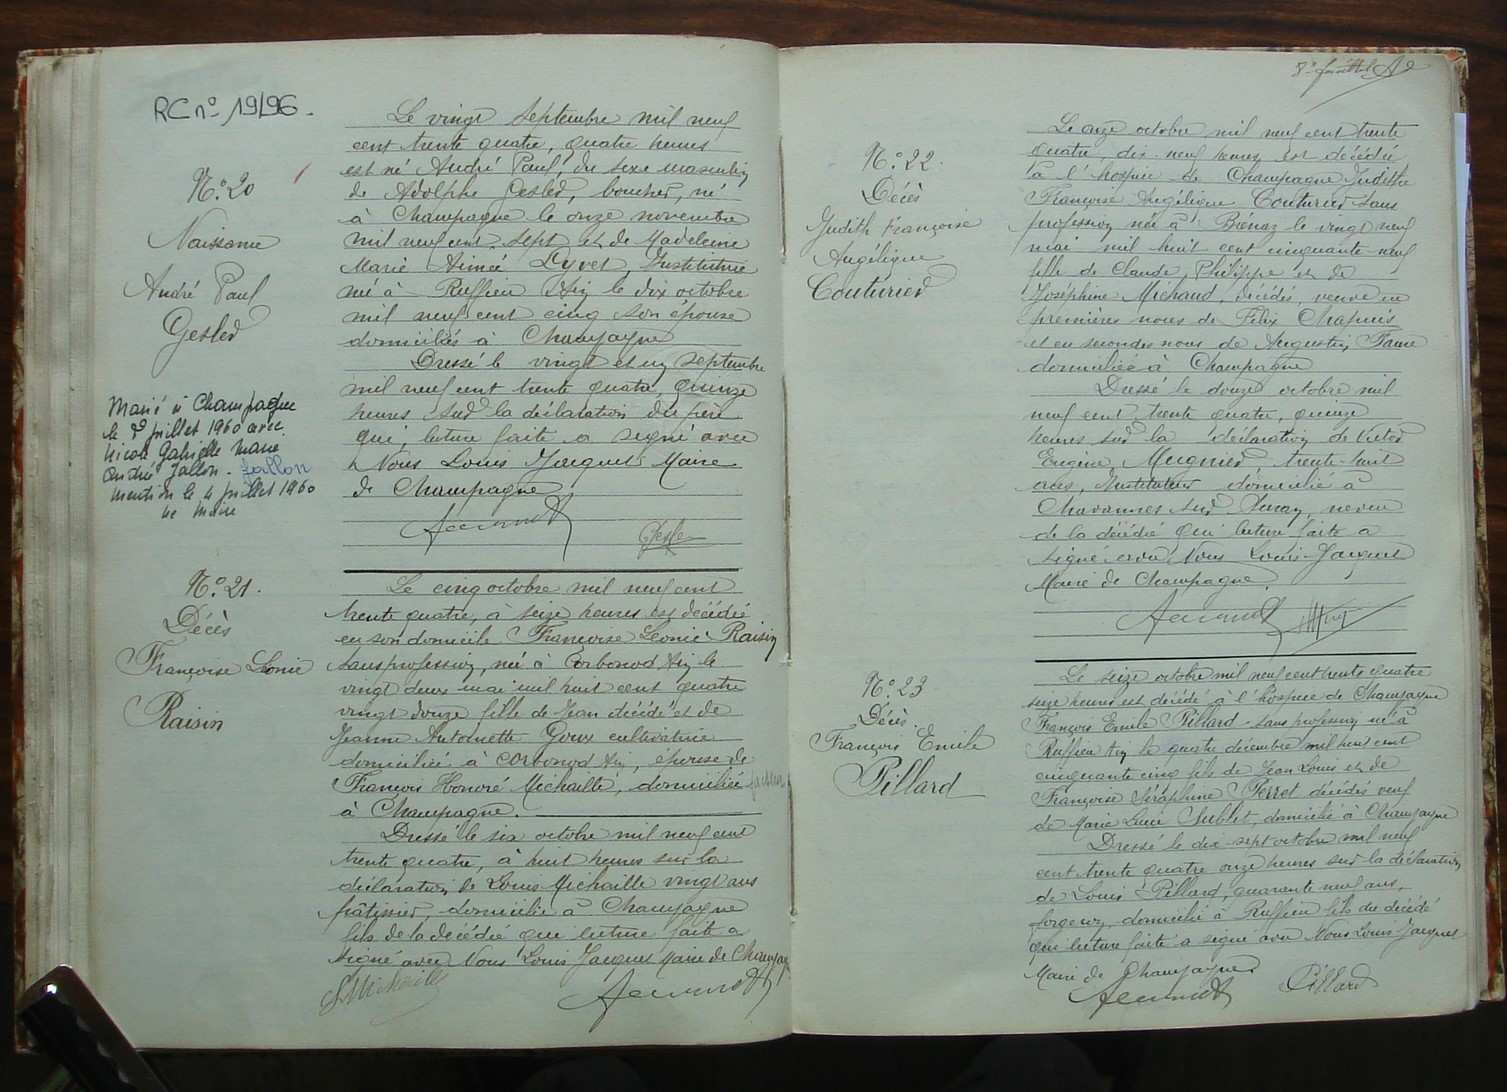 RC nº 19/96.
Nº 20
Naissance
André Paul
Gesler
Marié à Champagne
le 2 juillet 1960 avec
Nicole Gabrielle Marie
Andrée Jallon. Jallon
Mention le 4 juillet 1960
Le Maire
Le vingt septembre mil neuf
cent trente quatre, quatre heures
est né André Paul, du sexe masculin
de Adolphe Gesler, boucher, né
à Champagne le onze novembre
mil neuf cent sept et de Madeleine
Marie Aimée Lyvet, Institutrice
née à Ruffieu Ain le dix octobre
mil neuf cent cinq son épouse
domiciliés à Champagne
Dressé le vingt et un septembre
mil neuf cent trente quatre, quinze
heures sur la déclaration du père
qui, lecture faite a signé avec
Nous Louis Jacquet Maire
de Champagne
Gesler
Nº 21.
Décès
Françoise Léonie
Raisin
Le cinq octobre mil neuf cent
trente quatre, à seize heures est décédée
en son domicile Françoise Léonie Raisin
sans profession, née à Corbonod Ain le
vingt deux mai mil huit cent quatre
vingt douze fille de Jean décédé et de
Jeanne Antoinette Goux cultivatrice
domiciliée à Corbonod Ain, épouse de
François Honoré Michaille, domiciliée
à Champagne.
Dressé le six octobre mil neuf cent
trente quatre, à huit heures sur la
déclaration de Louis Michaille vingt ans
pâtissier, domicilié à Champagne
fils de la décédée qui lecture faite a
signé avec Nous Louis Jacquet Maire de Champag
L Michaille
8e feuillet
Nº 22.
Décès
Judith Françoise
Angélique
Couturier
Le onze octobre mil neuf cent trente
quatre, dix neuf heures est décédée
à l'hospice de Champagne Judith
Françoise Angélique Couturier sans
profession née à Béonaz le vingt neuf
mai mil huit cent cinquante neuf
fille de Claude Philippe et de
Joséphine Michaud, décédés, veuve en
premières noces de Félix Chapuis
et en secondes noces de Augustin Favre
domiciliée à Champagne
Dressé le douze octobre mil
neuf cent trente quatre, quinze
heures sur la déclaration de Victor
Eugène Mugnier trente-huit
ans, Instituteur domicilié à
Chavannes sur Suran, neveu
de la décédée qui lecture faite a
signé avec Nous Louis Jacquet
Maire de Champagne.
Nº 23
Décès.
François Emile
Pillard
Le seize octobre mil neuf cent trente quatre
seize heures est décédé à l'hospice de Champagne
François Emile Pillard sans profession né à
Ruffieu Ain le quatre décembre mil huit cent
cinquante cinq fils de Jean Louis et de
Françoise Séraphine Perret décédés veuf
de Marie Lucie Chublet domicilié à Champagne
Dressé le dix-sept octobre mil neuf
cent trente quatre onze heures sur la déclaration
de Louis Pillard, quarante neuf ans,
forgeron, domicilié à Ruffieu fils du décédé
qui lecture faite a signé avec Nous Louis Jacquet
Maire de Champagne
Pillard